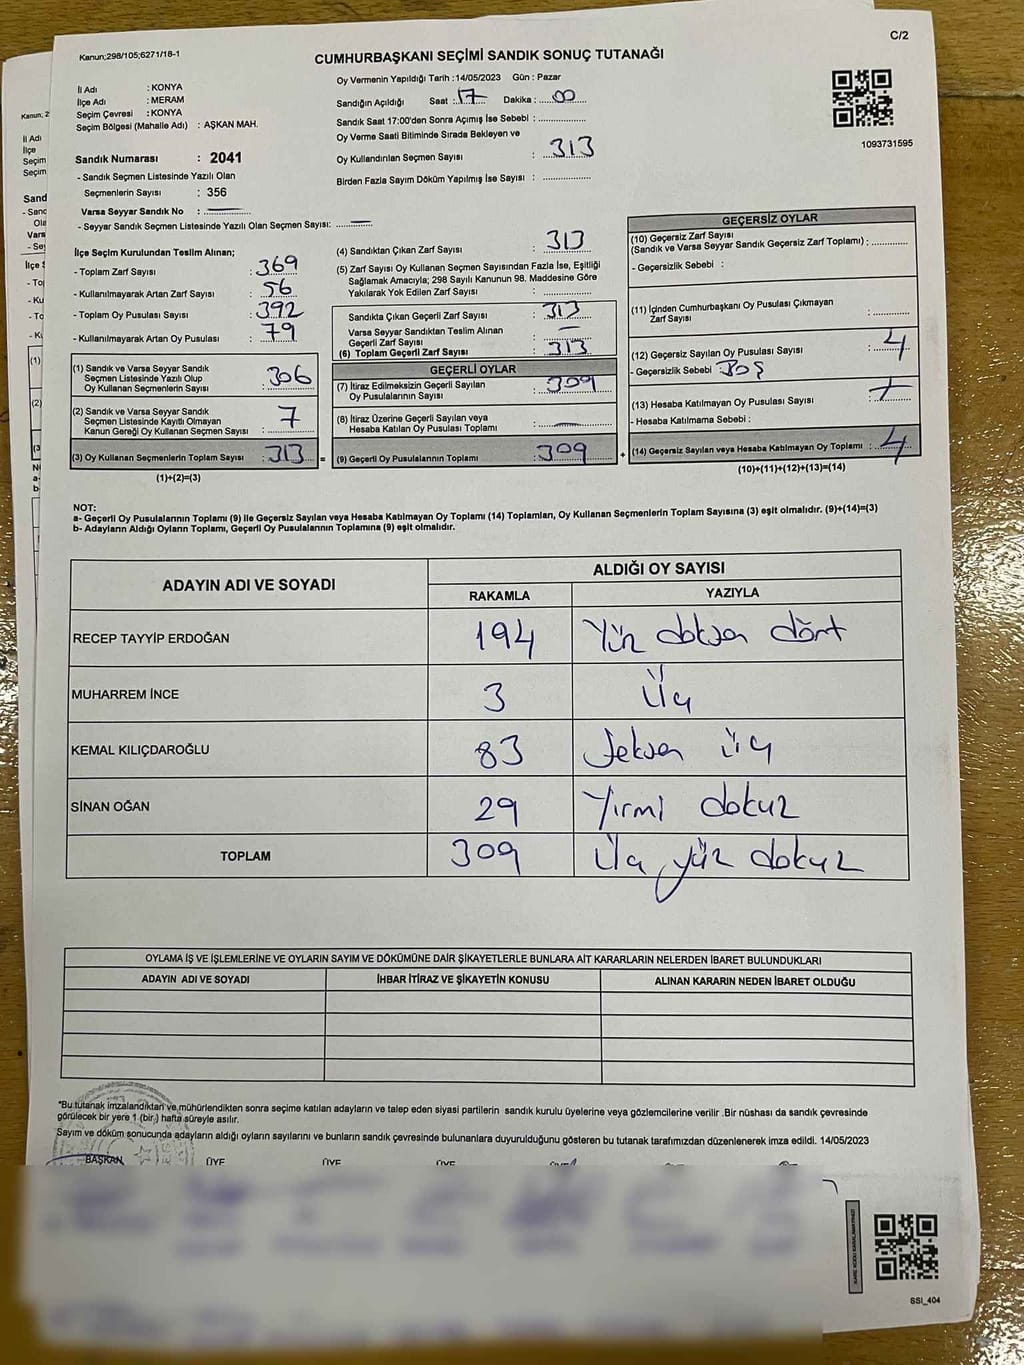 C/2
Kanun;298/105;6271/18-1
CUMHURBAŞKANI SEÇİMİ SANDIK SONUÇ TUTANAĞI
İl Adı : KONYA
İlçe Adı : MERAM
Seçim Çevresi : KONYA
Seçim Bölgesi (Mahalle Adı) : AŞKAN MAH.
Sandık Numarası : 2041
- Sandık Seçmen Listesinde Yazılı Olan
Seçmenlerin Sayısı : 356
Varsa Seyyar Sandık No :
- Seyyar Sandık Seçmen Listesinde Yazılı Olan Seçmen Sayısı:
Oy Vermenin Yapıldığı Tarih :14/05/2023 Gün : Pazar
Sandığın Açıldığı Saat : 17 Dakika : 00
Sandık Saat 17:00'den Sonra Açımış İse Sebebi :
Oy Verme Saati Bitiminde Sırada Bekleyen ve
Oy Kullandırılan Seçmen Sayısı : 313
Birden Fazla Sayım Döküm Yapılmış İse Sayısı :
1093731595
İlçe Seçim Kurulundan Teslim Alınan;
- Toplam Zarf Sayısı : 369
- Kullanılmayarak Artan Zarf Sayısı : 56
- Toplam Oy Pusulası Sayısı : 392
- Kullanılmayarak Artan Oy Pusulası : 79
(1) Sandık ve Varsa Seyyar Sandık
Seçmen Listesinde Yazılı Olup
Oy Kullanan Seçmenlerin Sayısı : 306
(2) Sandık ve Varsa Seyyar Sandık
Seçmen Listesinde Kayıtlı Olmayan
Kanun Gereği Oy Kullanan Seçmen Sayısı : 7
(3) Oy Kullanan Seçmenlerin Toplam Sayısı : 313 =
(1)+(2)=(3)
(4) Sandıktan Çıkan Zarf Sayısı : 313
(5) Zarf Sayısı Oy Kullanan Seçmen Sayısından Fazla İse, Eşitliği
Sağlamak Amacıyla; 298 Sayılı Kanunun 98. Maddesine Göre
Yakılarak Yok Edilen Zarf Sayısı :
Sandıkta Çıkan Geçerli Zarf Sayısı : 313
Varsa Seyyar Sandıktan Teslim Alınan
Geçerli Zarf Sayısı :
(6) Toplam Geçerli Zarf Sayısı : 313
GEÇERLİ OYLAR
(7) İtiraz Edilmeksizin Geçerli Sayılan
Oy Pusulalarının Sayısı : 309
(8) İtiraz Üzerine Geçerli Sayılan veya
Hesaba Katılan Oy Pusulası Toplamı :
(9) Geçerli Oy Pusulalarının Toplamı : 309 +
GEÇERSİZ OYLAR
(10) Geçersiz Zarf Sayısı
(Sandık ve Varsa Seyyar Sandık Geçersiz Zarf Toplamı) :
- Geçersizlik Sebebi :
(11) İçinden Cumhurbaşkanı Oy Pusulası Çıkmayan
Zarf Sayısı :
(12) Geçersiz Sayılan Oy Pusulası Sayısı : 4
- Geçersizlik Sebebi : Boş
(13) Hesaba Katılmayan Oy Pusulası Sayısı :
- Hesaba Katılmama Sebebi :
(14) Geçersiz Sayılan veya Hesaba Katılmayan Oy Toplamı : 4
(10)+(11)+(12)+(13)=(14)
NOT:
a- Geçerli Oy Pusulalarının Toplamı (9) ile Geçersiz Sayılan veya Hesaba Katılmayan Oy Toplamı (14) Toplamları, Oy Kullanan Seçmenlerin Toplam Sayısına (3) eşit olmalıdır. (9)+(14)=(3)
b- Adayların Aldığı Oyların Toplamı, Geçerli Oy Pusulalarının Toplamına (9) eşit olmalıdır.
ADAYIN ADI VE SOYADI
ALDIĞI OY SAYISI
RAKAMLA YAZIYLA
RECEP TAYYİP ERDOĞAN 194 Yüz doksan dört
MUHARREM İNCE 3 Üç
KEMAL KILIÇDAROĞLU 83 Seksen üç
SİNAN OĞAN 29 Yirmi dokuz
TOPLAM 309 Üç yüz dokuz
OYLAMA İŞ VE İŞLEMLERİNE VE OYLARIN SAYIM VE DÖKÜMÜNE DAİR ŞİKAYETLERLE BUNLARA AİT KARARLARIN NELERDEN İBARET BULUNDUKLARI
ADAYIN ADI VE SOYADI İHBAR İTİRAZ VE ŞİKAYETİN KONUSU ALINAN KARARIN NEDEN İBARET OLDUĞU
*Bu tutanak imzalandıktan ve mühürlendikten sonra seçime katılan adayların ve talep eden siyasi partilerin sandık kurulu üyelerine veya gözlemcilerine verilir .Bir nüshası da sandık çevresinde
görülecek bir yere 1 (bir.) hafta süreyle asılır.
Sayım ve döküm sonucunda adayların aldığı oyların sayılarını ve bunların sandık çevresinde bulunanlara duyurulduğunu gösteren bu tutanak tarafımızdan düzenlenerek imza edildi. 14/05/2023
BAŞKAN ÜYE ÜYE ÜYE
SSI_404